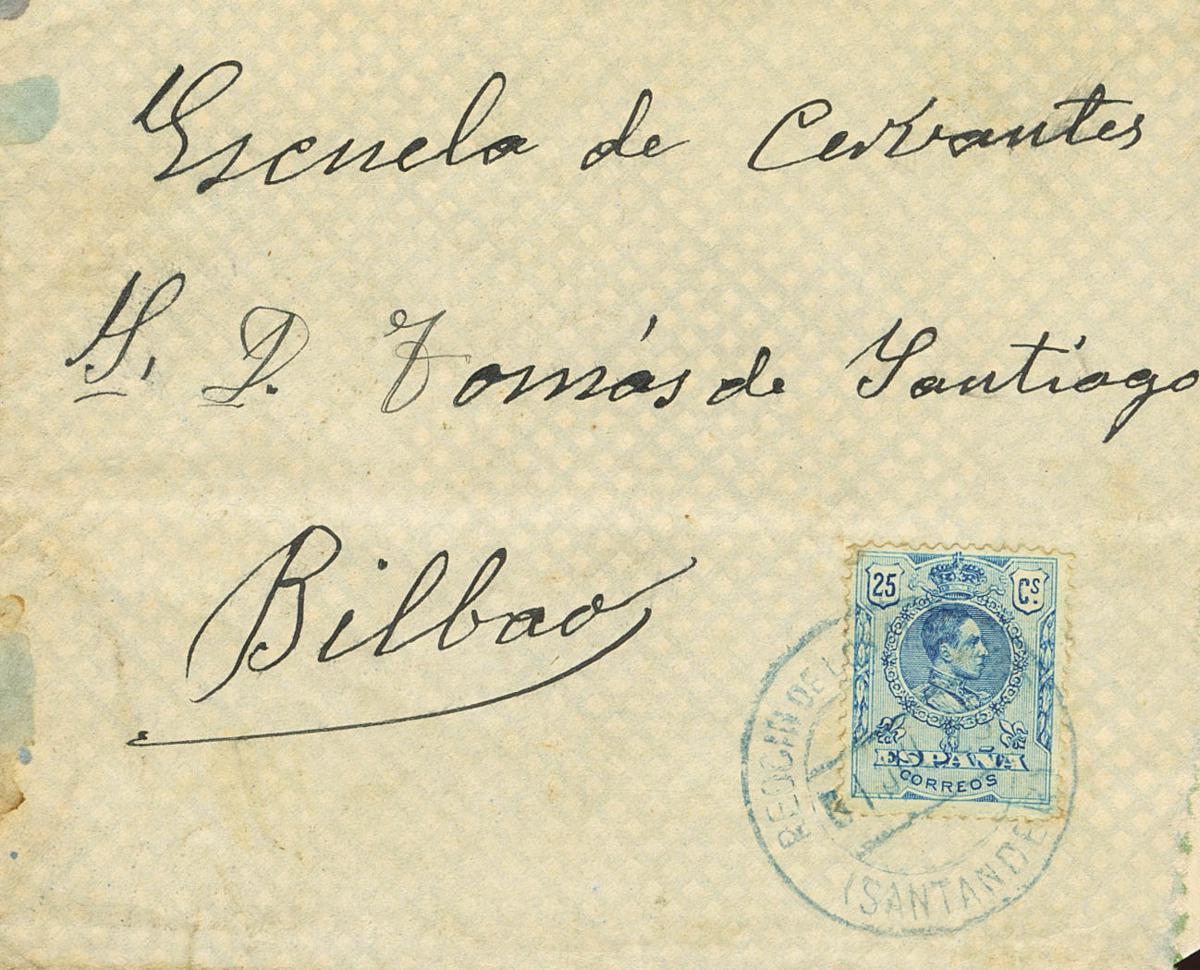 Escuela de Cervantes
S. D. Tomás de Santiago
Bilbao
25 Cs.
ESPAÑA
CORREOS
REOCIN DE L
(SANTANDE